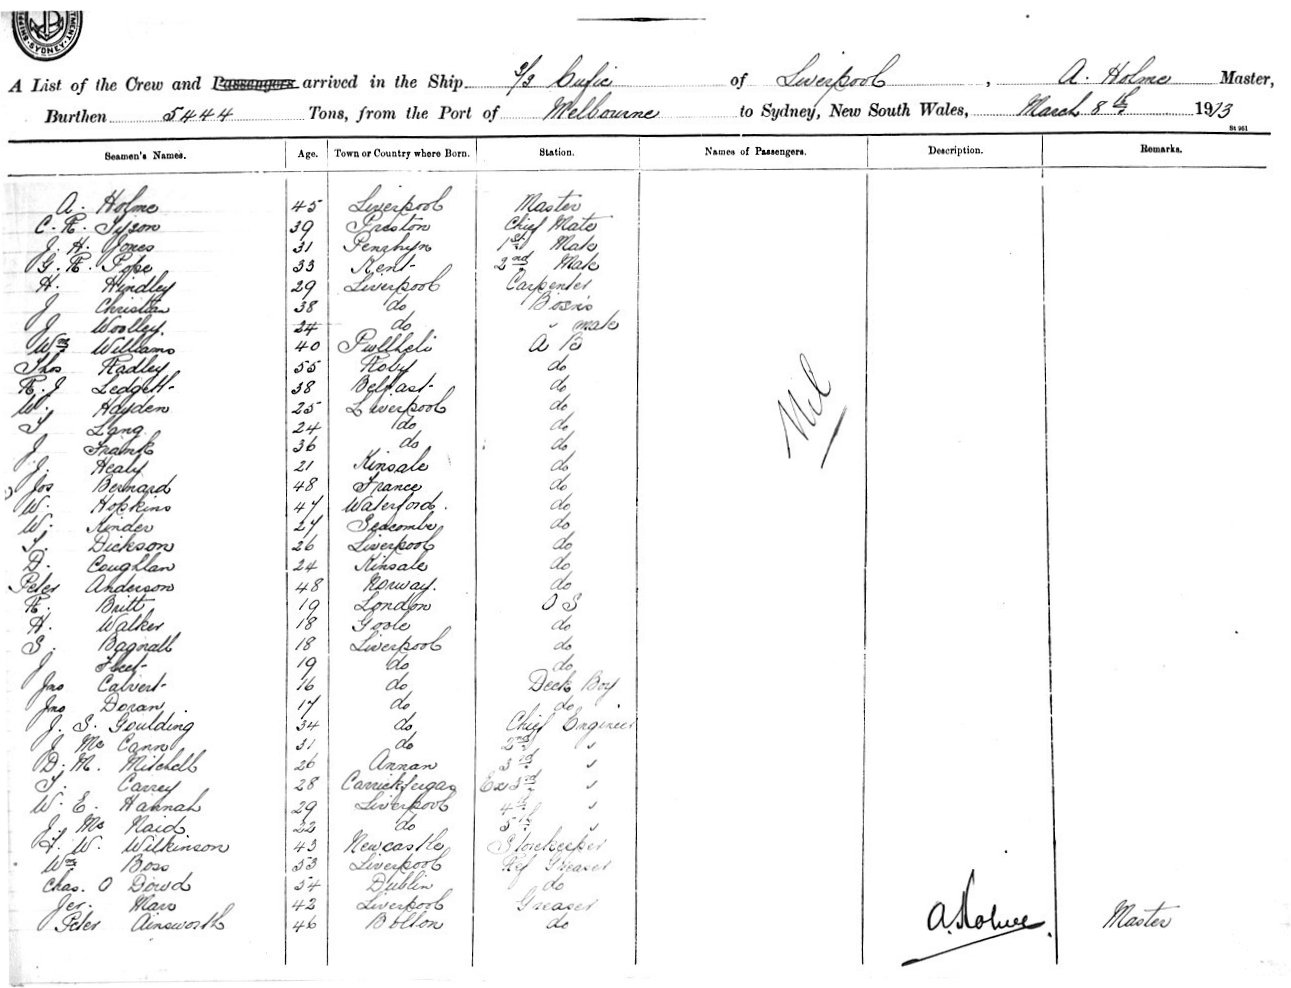 SYDNEY
A List of the Crew and Passengers arrived in the Ship S/S Cufic of Liverpool, A. Holme Master,
Burthen 5444 Tons, from the Port of Melbourne to Sydney, New South Wales, March 8th 1913
St 961
Seamen's Names. Age. Town or Country where Born. Station. Names of Passengers. Description. Remarks.
A. Holme 45 Liverpool Master
C. R. Tyson 39 Preston Chief Mate
J. H. Jones 31 Penrhyn 1st Mate
G. R. Pope 33 Kent 2nd Mate
H. Hindley 29 Liverpool Carpenter
J Christian 38 do Bosns
J Woolley. 24 do " mate
Wm Williams 40 Pwllheli A B
Thos Radley 55 Roby do
R. J Ledgett 38 Belfast do
W. Hayden 25 Liverpool do
T Lang 24 do do
J Frank 36 do do
J. Healy 21 Kinsale do
Jos Bernard 48 France do
W. Hopkins 47 Waterford. do
W. Kinder 27 Seacombe do
T. Dickson 26 Liverpool do
D. Coughlan 24 Kinsale do
Peter Anderson 48 Norway. do
R. Britt 19 London O S
H. Walker 18 Goole do
S. Bagnall 18 Liverpool do
J Fleet 19 do do
Jno Calvert 16 do Deck Boy
Jno Doran 17 do do
J. S. Goulding 34 do Chief Engineer
J Mc Cann 31 do 2nd "
D. M. Mitchell 26 Annan 3rd "
T. Carrey 28 Carrickfergas Ex 3rd "
W. E. Hannah 29 Liverpool 4th "
J. Mc Naid 22 do 5th "
T. W. Wilkinson 43 Newcastle Storekeeper
Wm Boss 53 Liverpool Ref Greaser
Chas. O Dowd 54 Dublin do
Jer. Mars 42 Liverpool Greaser
Peter Ainsworth 46 Bolton do
Nil
A. Holme. Master